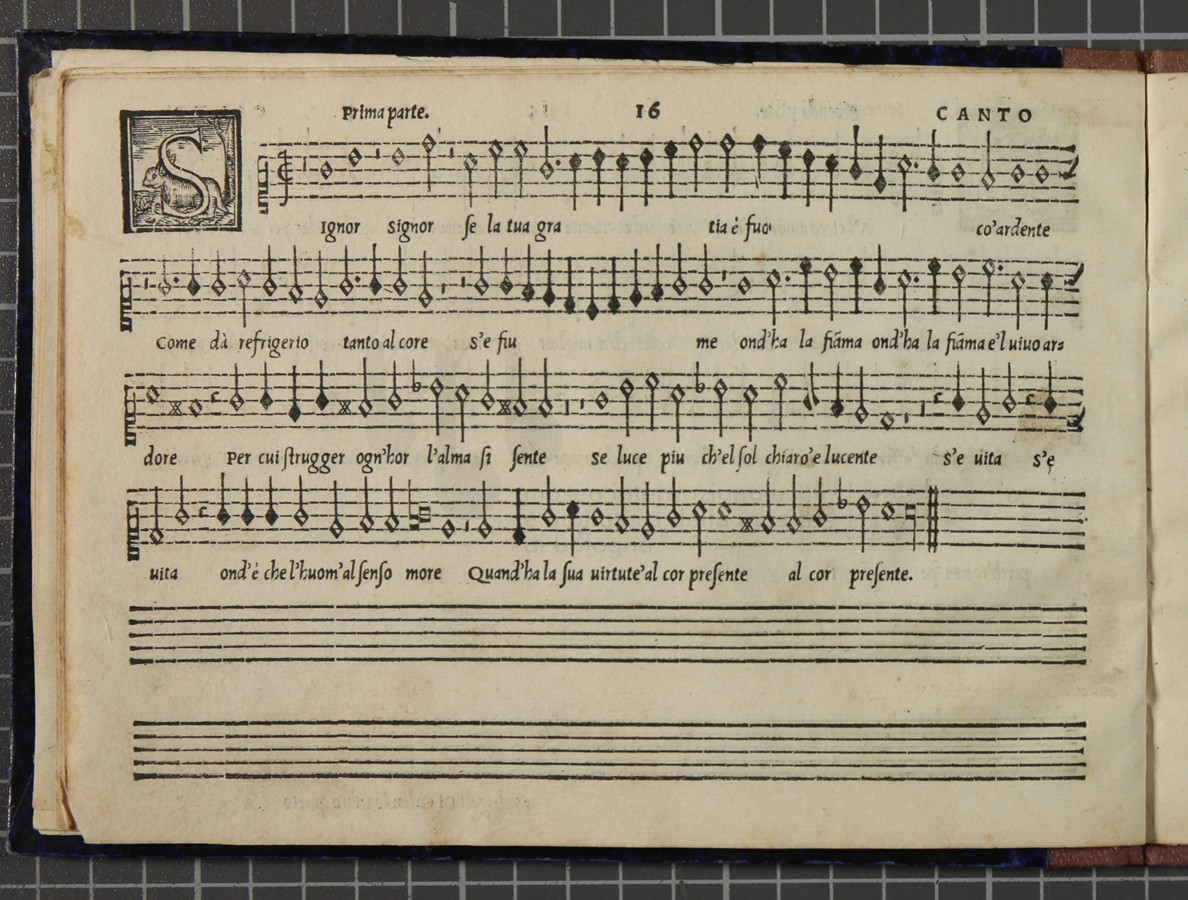 Prima parte. 16 CANTO
SIgnor Signor se la tua gra tia è fuo co'ardente
Come dà refrigerio tanto al core S'e fiu me ond'ha la fiãma ond'ha la fiãma e'l uiuo ar=
dore Per cui strugger ogn'hor l'alma si sente Se luce piu ch'el sol chiaro'e lucente S'e uita S'e
uita ond'è che l'huom'al senso more Quand'ha la sua uirtute'al cor presente al cor presente.